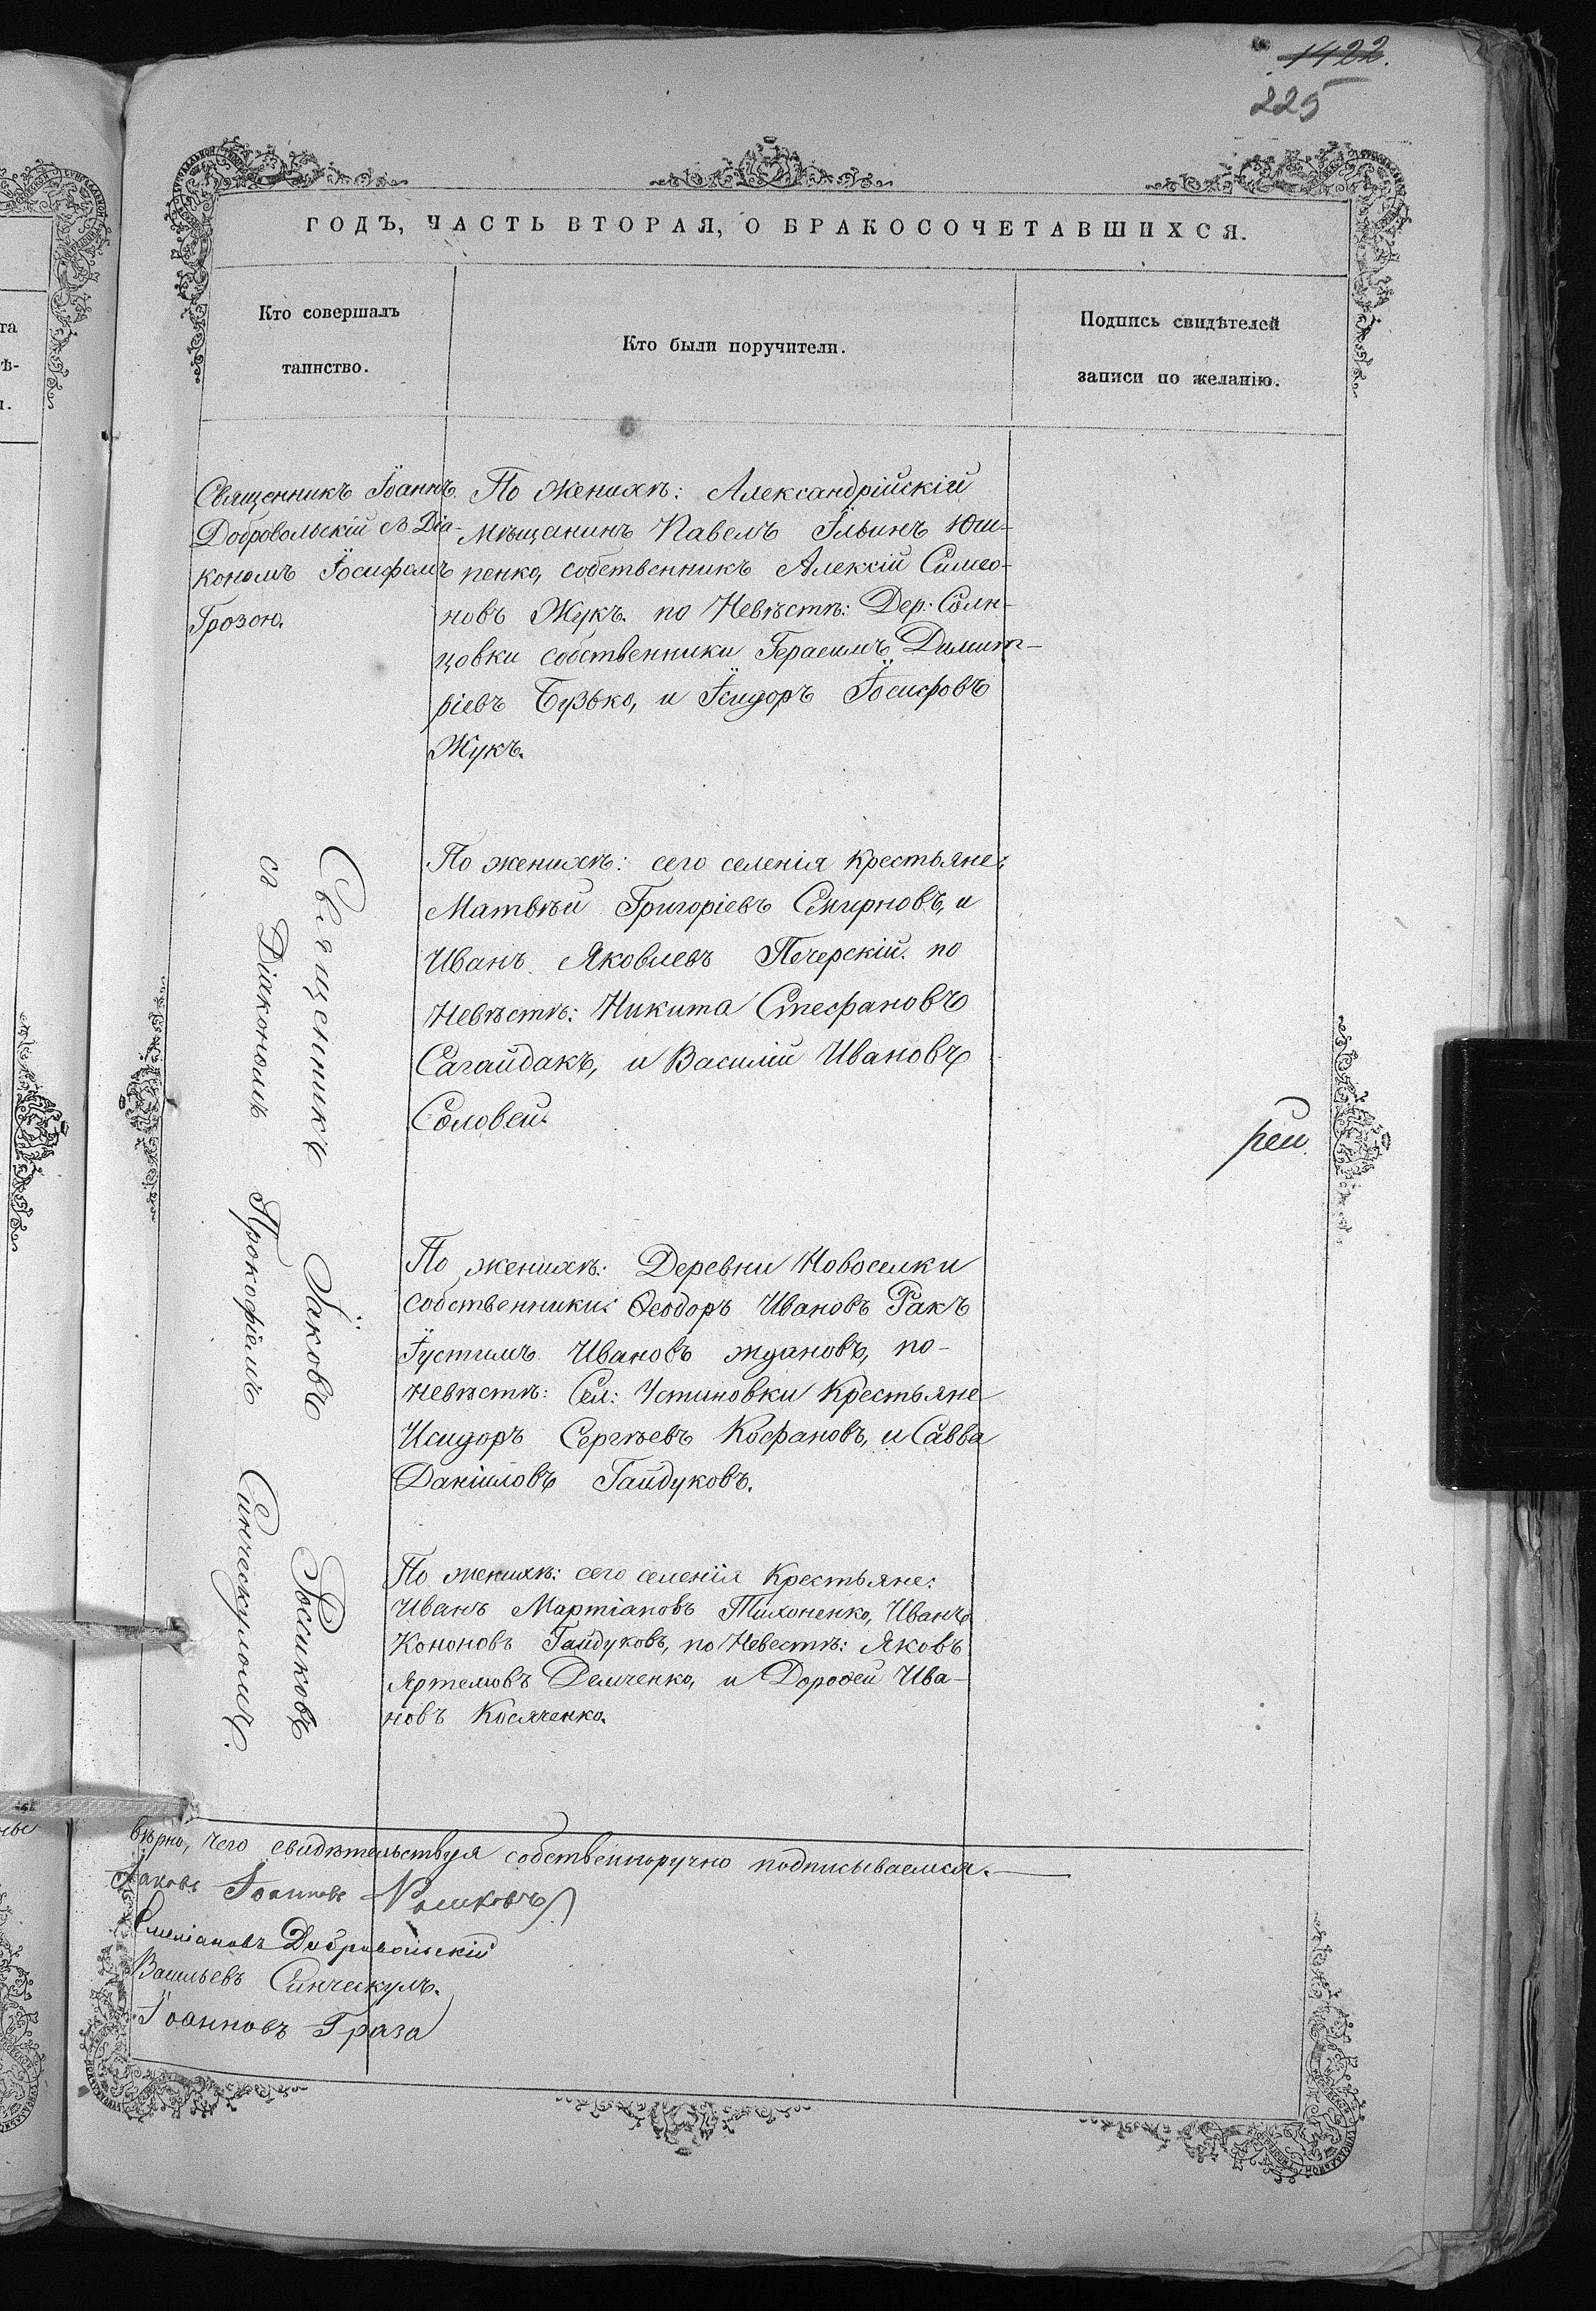 1422.
225
ГОДЪ, ЧАСТЬ ВТОРАЯ, О БРАКОСОЧЕТАВШИХСЯ.
Кто совершалъ
таинство.
Кто были поручители.
Подпись свидѣтелей
записи по желанію.
Священникъ Іоаннъ
Добровольскій съ Діа-
кономъ Іосифомъ
Грозою.
По женихѣ: Александрійскій
мѣщанинъ Павелъ Ильинъ Юш-
пенко, собственникъ Алексій Симео-
новъ Жукъ. по Невѣстѣ: Дер: Солн-
цовки собственники Герасимъ Димит-
ріевъ Бузько, и Ісидоръ Іосифовъ
Жукъ.
Священникъ Іаковъ Росиковъ
съ Діакономъ Прокофіемъ Синческуломъ.
По женихѣ: сего селенія крестьяне:
Матвѣй Григоріевъ Смирновъ, и
Иванъ Яковлевъ Печерскій. по
Невѣстѣ: Никита Стефановъ
Сагайдакъ, и Василій Ивановъ
Соловей.
рей.
По женихѣ: Деревни Новоселки
собственники: Ѳеодоръ Ивановъ Ракъ
Іустимъ Ивановъ Ждановъ, по-
невѣстѣ: Сел: Устиновки Крестьяне
Исидоръ Сергѣевъ Кофановъ, и Савва
Даніиловъ Гайдуковъ.
По женихѣ: сего селенія Крестьяне:
Иванъ Мартіановъ Тихоненко, Иванъ
Кононовъ Гайдуковъ, по Невестѣ: Яковъ
Артемовъ Демченко, и Дороѳей Ива-
новъ Косяченко.
вѣрно, чего свидѣтельствуя собственноручно подписываемся.
Іаковъ Іоанновъ Росиковъ
Емеліановъ Добровольскій
Васильевъ Синческулъ.
Іоанновъ Гроза